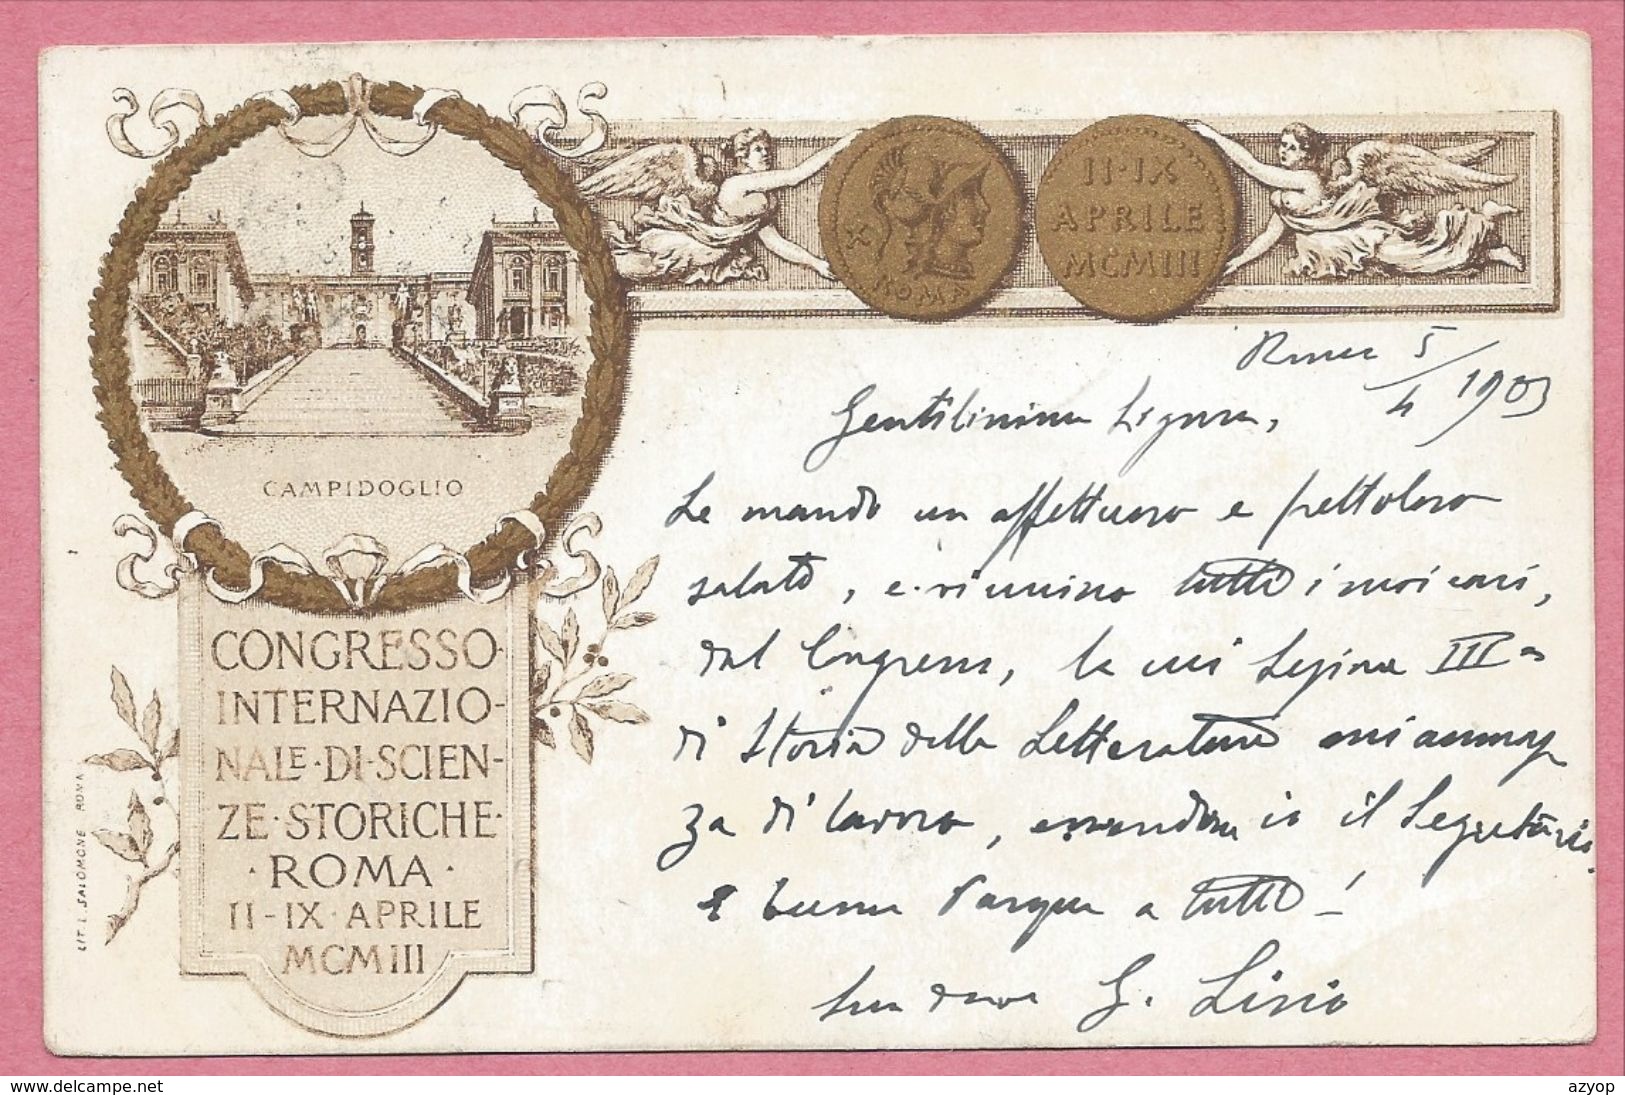 ROMA
X
II·IX
APRILE
MCMIII
CAMPIDOGLIO
CONGRESSO·
INTERNAZIO-
NALE·DI·SCIEN-
ZE·STORICHE·
·ROMA·
II-IX·APRILE
MCMIII
LIT. L. SALOMONE ROMA
Roma 5/4 1903
Gentilissima Signora,
Le mando un affettuoso e frettoloso
saluto, e riunisco tutti i suoi cari,
dal Congresso, la cui Sezione IIIa
di Storia delle Letterature mi ammaz
za di lavoro, essendone io il Segretario.
E buona Pasqua a tutti!
Suo G. Lisio
azyop